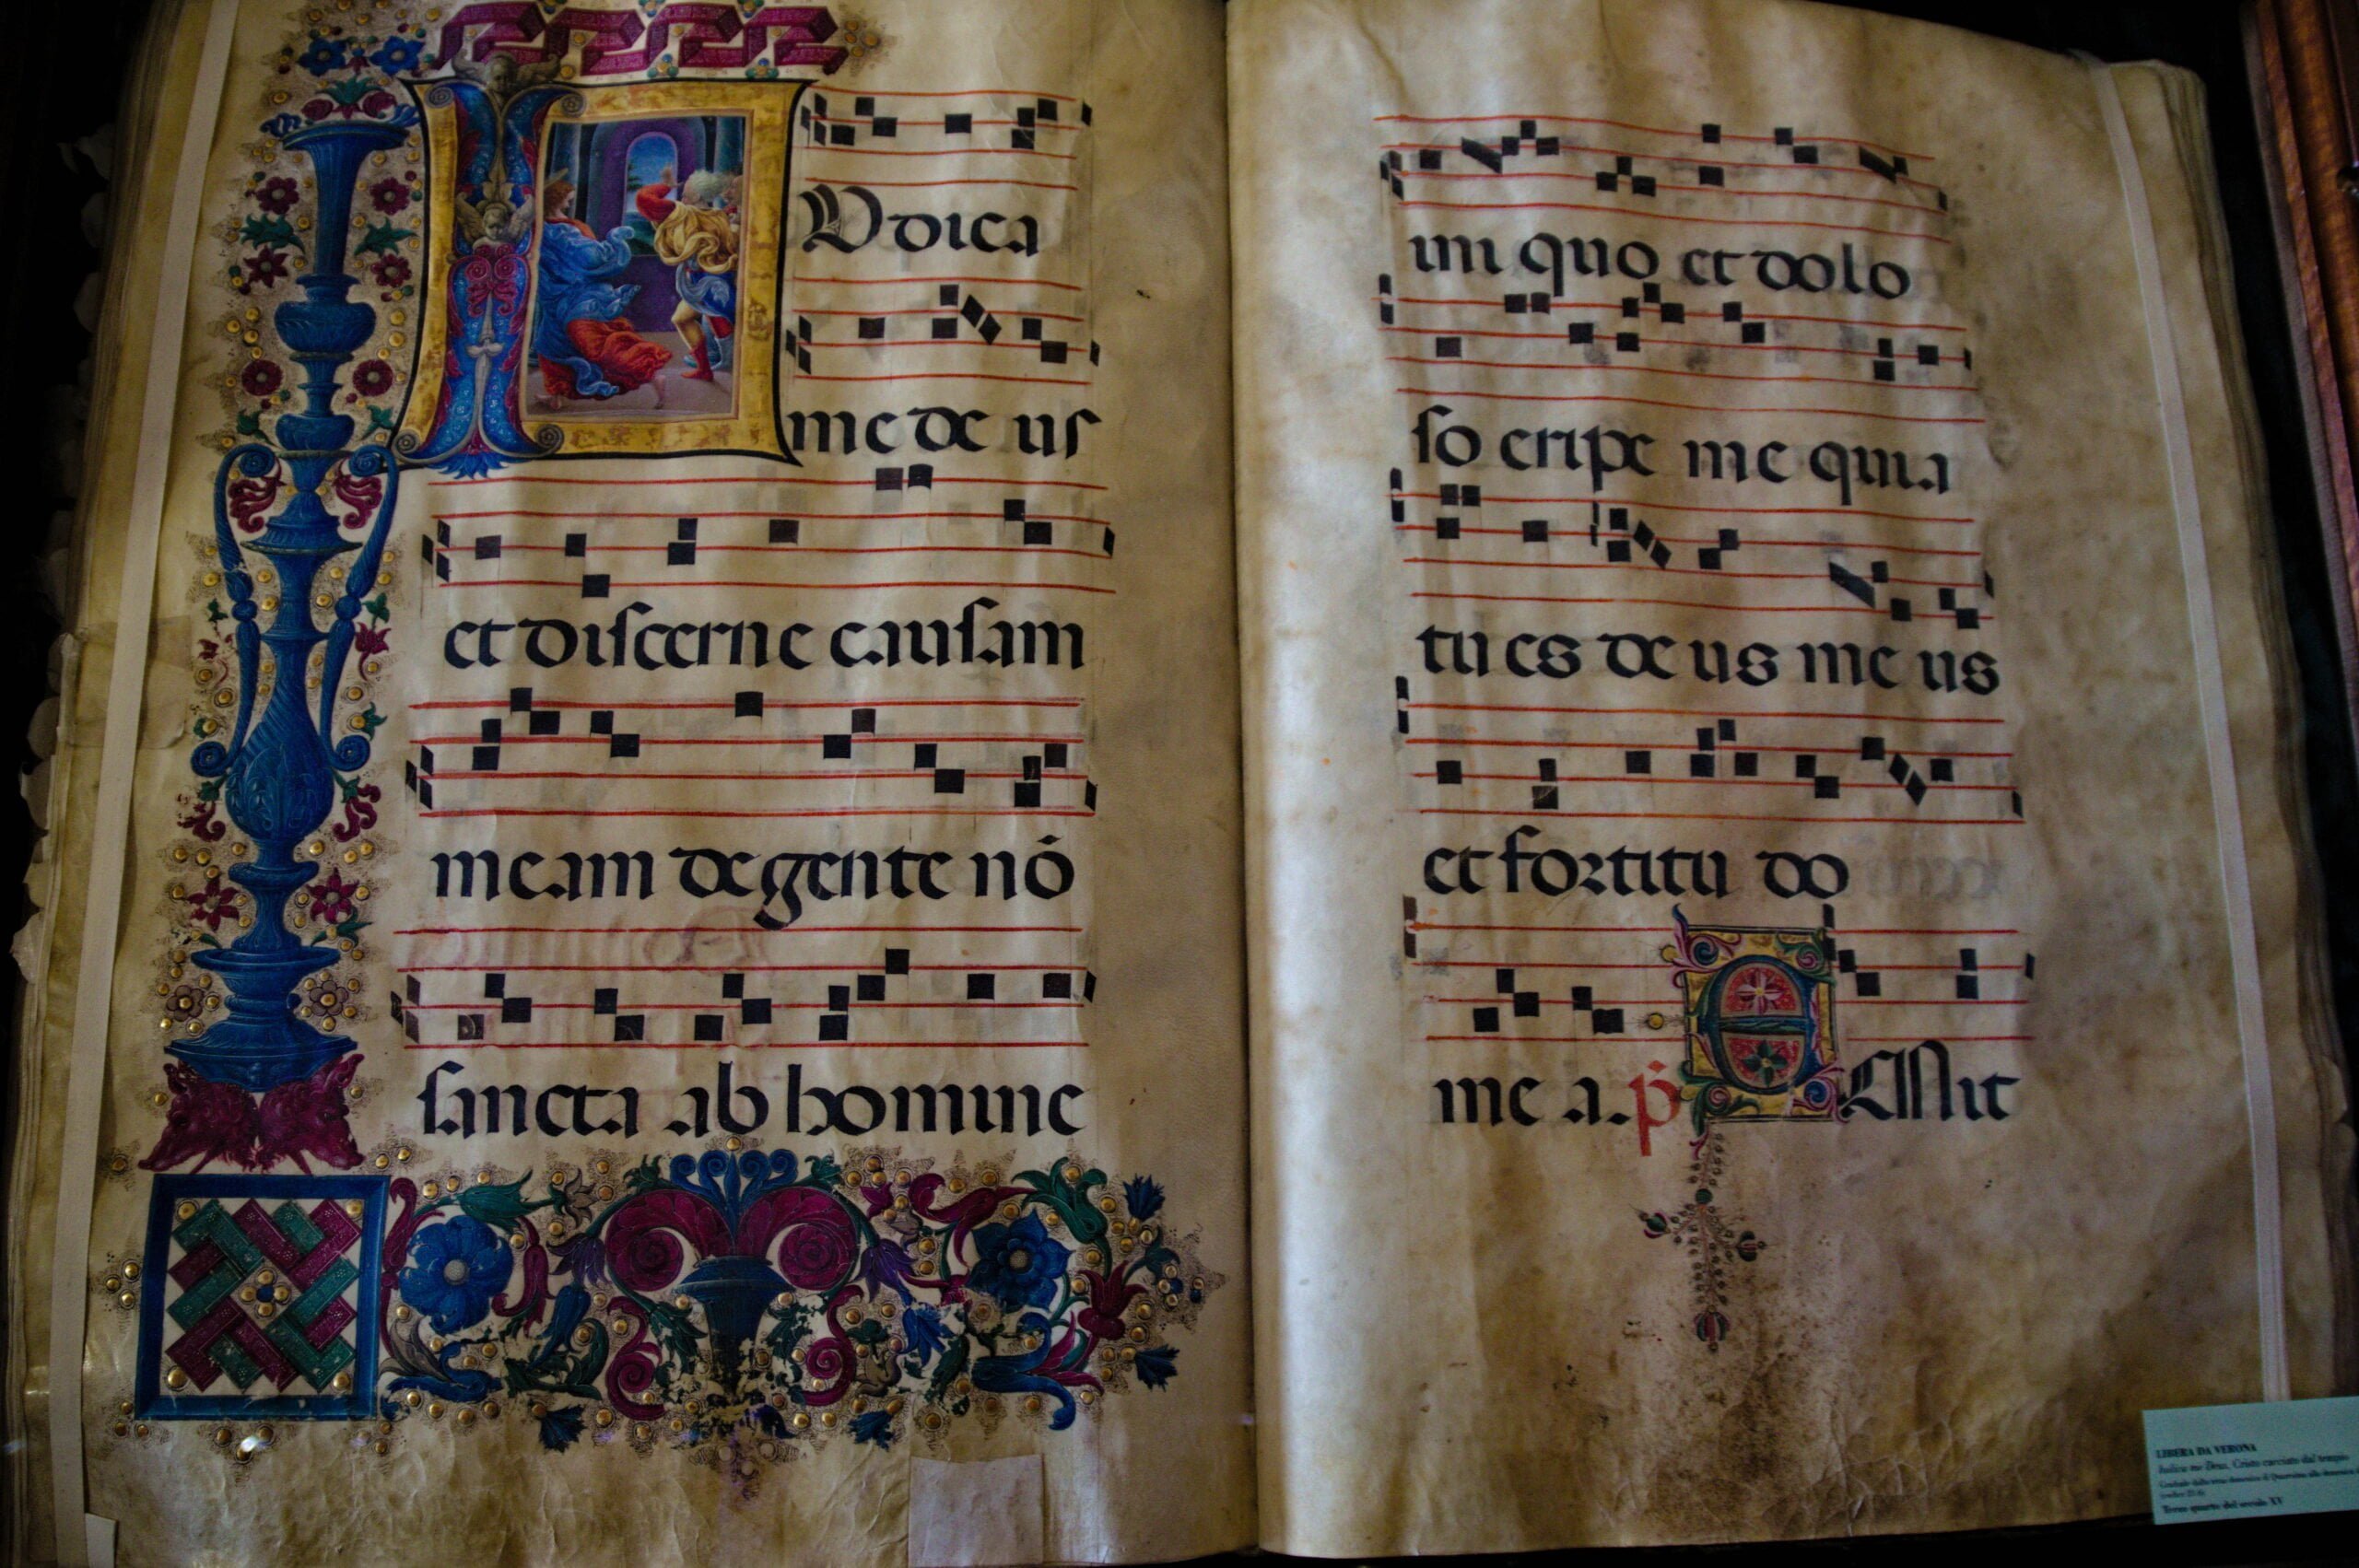 IVdica
me de us
et discerne causam
meam de gente nō
sancta ab homine
ini quo et dolo
so eripe me quia
tu es de us me us
et fortitu do
me a. p̄s EMit
LIBERA DA VERONA
Iudica me Deus, Cristo cacciato dal tempio
Terzo quarto del secolo XV